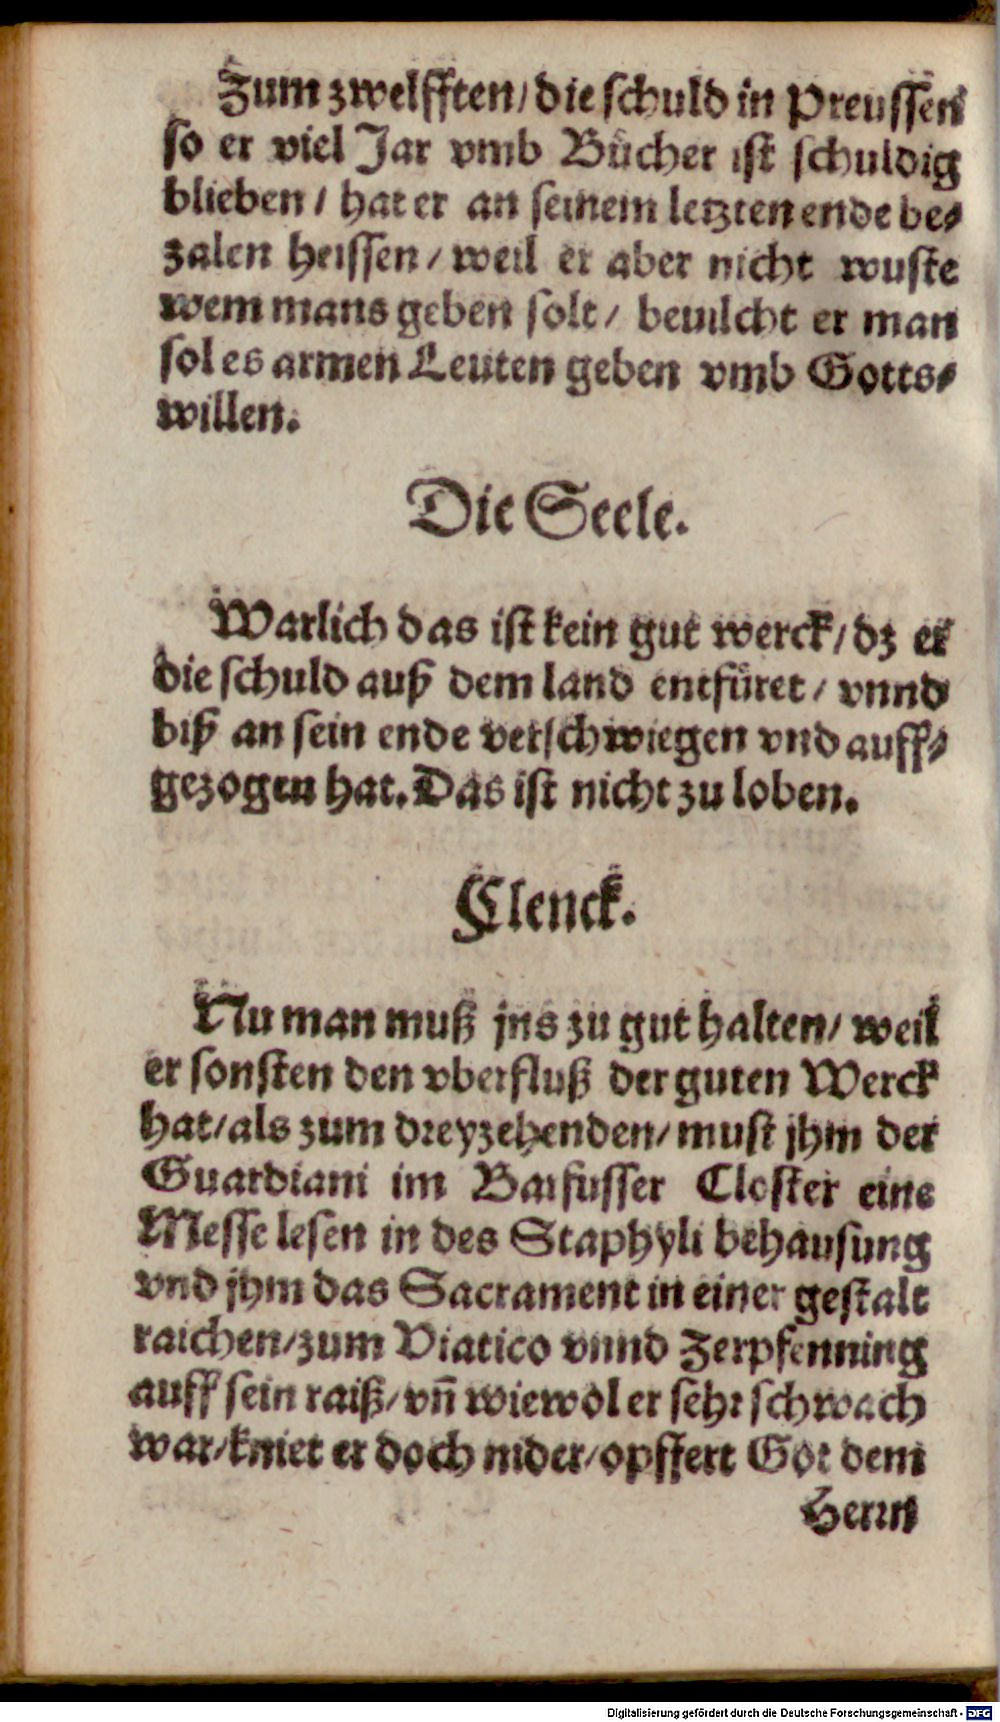 Zum zwelfften/ die schuld in Preussen
so er viel Jar vmb Bücher ist schuldig
blieben / hat er an seinem letzten ende be⸗
zalen heissen / weil er aber nicht wuste
wem mans geben solt / beuilcht er man
sol es armen Leuten geben vmb Gotts⸗
willen.
Die Seele.
Warlich das ist kein gut werck/ dz er
die schuld auß dem land entfüret / vnnd
biß an sein ende verschwiegen vnd auff⸗
gezogen hat. Das ist nicht zu loben.
Clenck.
Nu man muß jns zu gut halten/ weil
er sonsten den vberfluß der guten Werck
hat/ als zum dreyzehenden/ must jhm der
Guardiani im Barfusser Closter eine
Messe lesen in des Staphyli behausung
vnd jhm das Sacrament in einer gestalt
raichen/ zum Viatico vnnd Zerpfenning
auff sein raiß/ vñ wiewol er sehr schwach
war/ kniet er doch nider/ opffert Got dem
Herrn
Digitalisierung gefördert durch die Deutsche Forschungsgemeinschaft - DFG